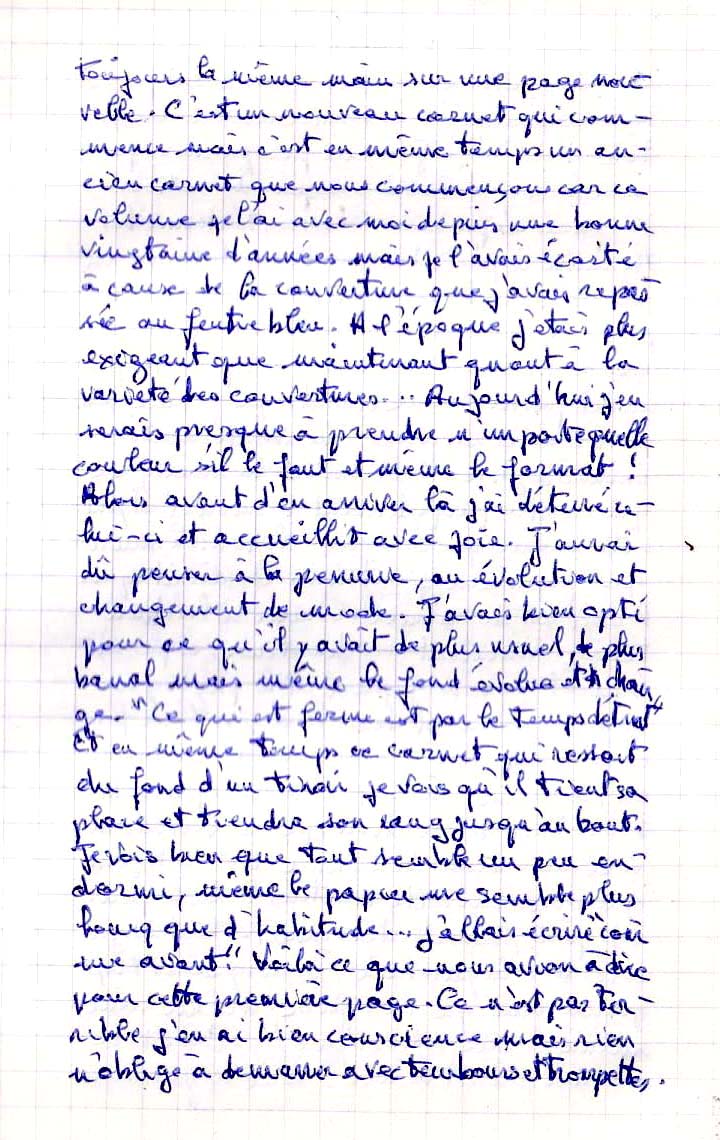 toujours la même main sur une page nou-
velle. C'est un nouveau carnet qui com-
mence mais c'est en même temps un an-
cien carnet que nous commençons car ce
volume je l'ai avec moi depuis une bonne
vingtaine d'années mais je l'avais écarté
à cause de la couverture que j'avais repas
sée au feutre bleu. A l'époque j'étais plus
exigeant que maintenant quant à la
variété des couvertures... Aujourd'hui j'en
serais presque à prendre n'importe quelle
couleur s'il le faut et même le format !
Alors avant d'en arriver là j'ai déterré ce-
lui-ci et accueillit avec joie. J'aurai
dû penser à la penurie, au évolution et
changement de mode. J'avais bien opté
pour ce qu'il y avait de plus usuel, de plus
banal mais même le fond évolue et chan
ge. "Ce qui est ferme est par le temps détruit"
Et en même temps ce carnet qui ressort
du fond d'un tiroir je vois qu'il tient sa
place et tiendra son rang jusqu'au bout.
Je vois bien que tout semble un peu en-
dormi, même le papier me semble plus
lourd que d'habitude... j'allais écrire "com
me avant". Voilà ce que nous avion à dire
pour cette première page. Ce n'est pas ter-
rible j'en ai bien conscience mais rien
n'oblige à demarrer avec tembours et trompettes.